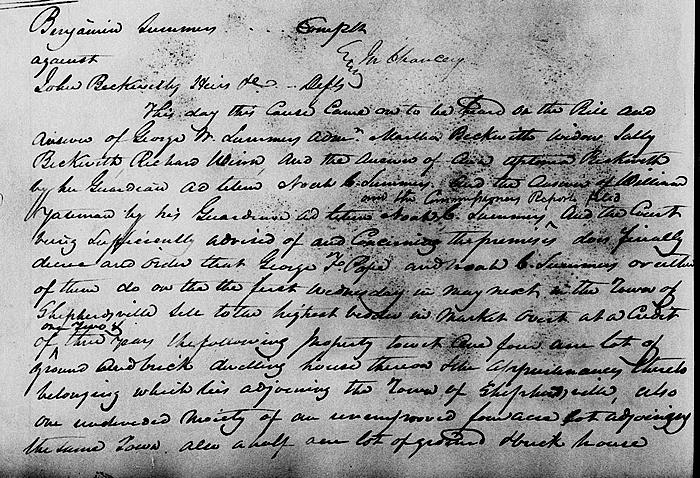 Benjamin Summers . . . Complt
against In Chancery
John Beckwiths Heirs &c - - Defts
This day this Cause Came on to be heard on the Bill and
answer of George W. Summers admr. Martha Beckwith widow Sally
Beckwith Richard and the answer of Ann Beckwith
by her Guardian ad litem Noah C. Summers. And the answer of William
Yateman by his Guardian ad litem Noah C. Summers and the Commissioners Report filed And the Court
being sufficiently advised of and Concerning the premises does finally
decree and order that George F. Pope and Noah C. Summers or either
of them do on the the first Wednesday in may next in the Town of
Shepherdsville sell to the highest bidder in market overt at a Credit
of one Two & three years the following property towit One four acre lot of
ground and brick dwelling house thereon & the appurtenances thereto
belonging which lies adjoining the Town of Shepherdsville, also
one undivided moiety of an unimproved four acre lot adjoining
the same Town. also a half acre lot of ground & brick house